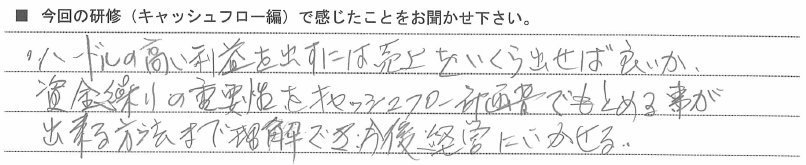 ■ 今回の研修（キャッシュフロー編）で感じたことをお聞かせ下さい。
ハードルの高い利益を出すには売上をいくら出せば良いか、
資金繰りの重要性をキャッシュフロー計画書でもとめる事が
出来る方法まで理解でき、今後経営にいかせる。